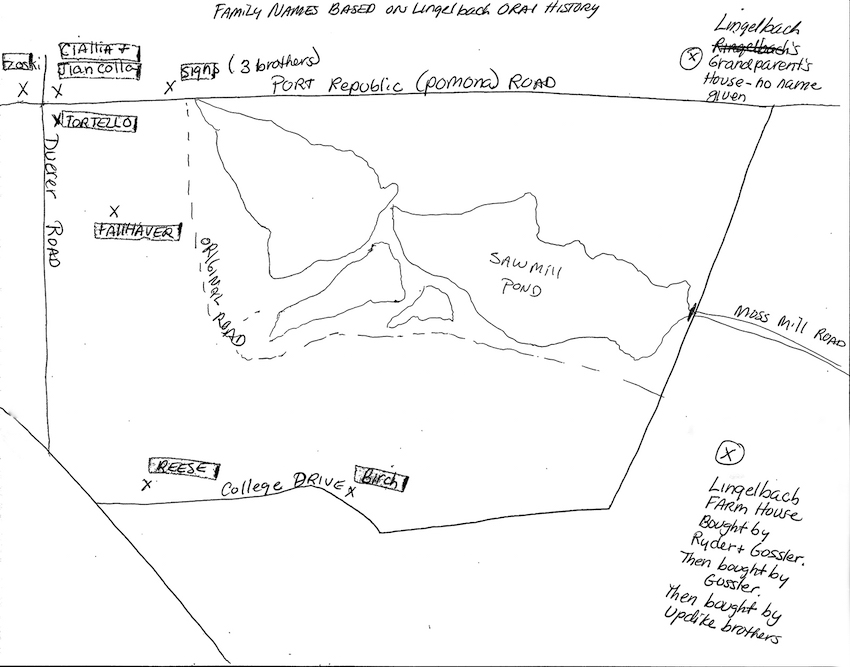 Family Names Based on Lingelbach Oral History
Ciallia +
Jiancolla
Signs (3 brothers)
Port Republic (Pomona) Road
Lingelbach
Ringelbach's
Grandparent's
House - no name
given
TORTELLO
Duerer Road
FALLHAVER
ORIGINAL ROAD
SAWMILL
POND
Moss Mill Road
REESE
College DRIVE
Birch
Lingelbach
FARM House
Bought by
Ryder + Gossler.
Then bought by
Gossler.
Then bought by
Updike brothers